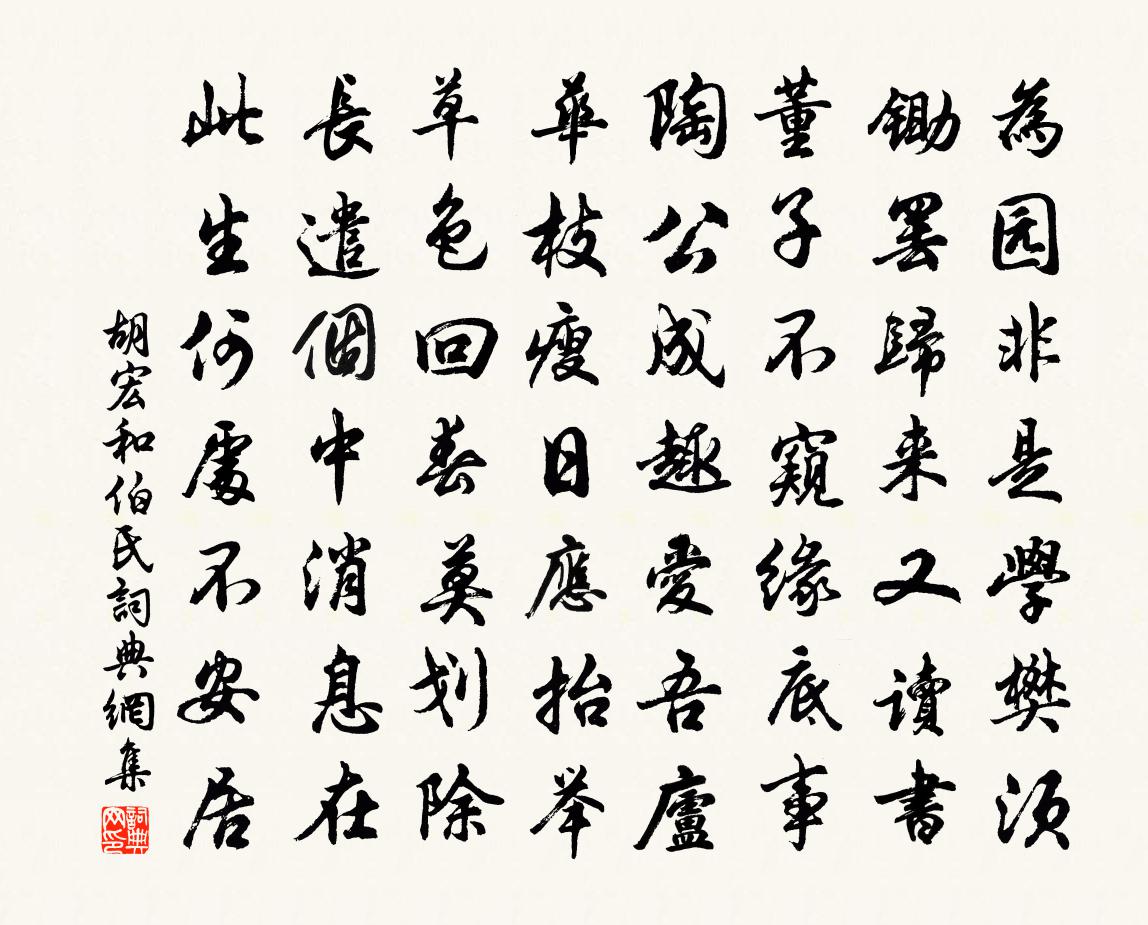 為园非是學樊須
鋤罢歸来又讀書
董子不窺緣底事
陶公成趣愛吾廬
華枝瘦日應抬举
草色回春莫划除
長遣個中消息在
此生何處不安居
胡宏和伯氏詞典網集
詞典网印